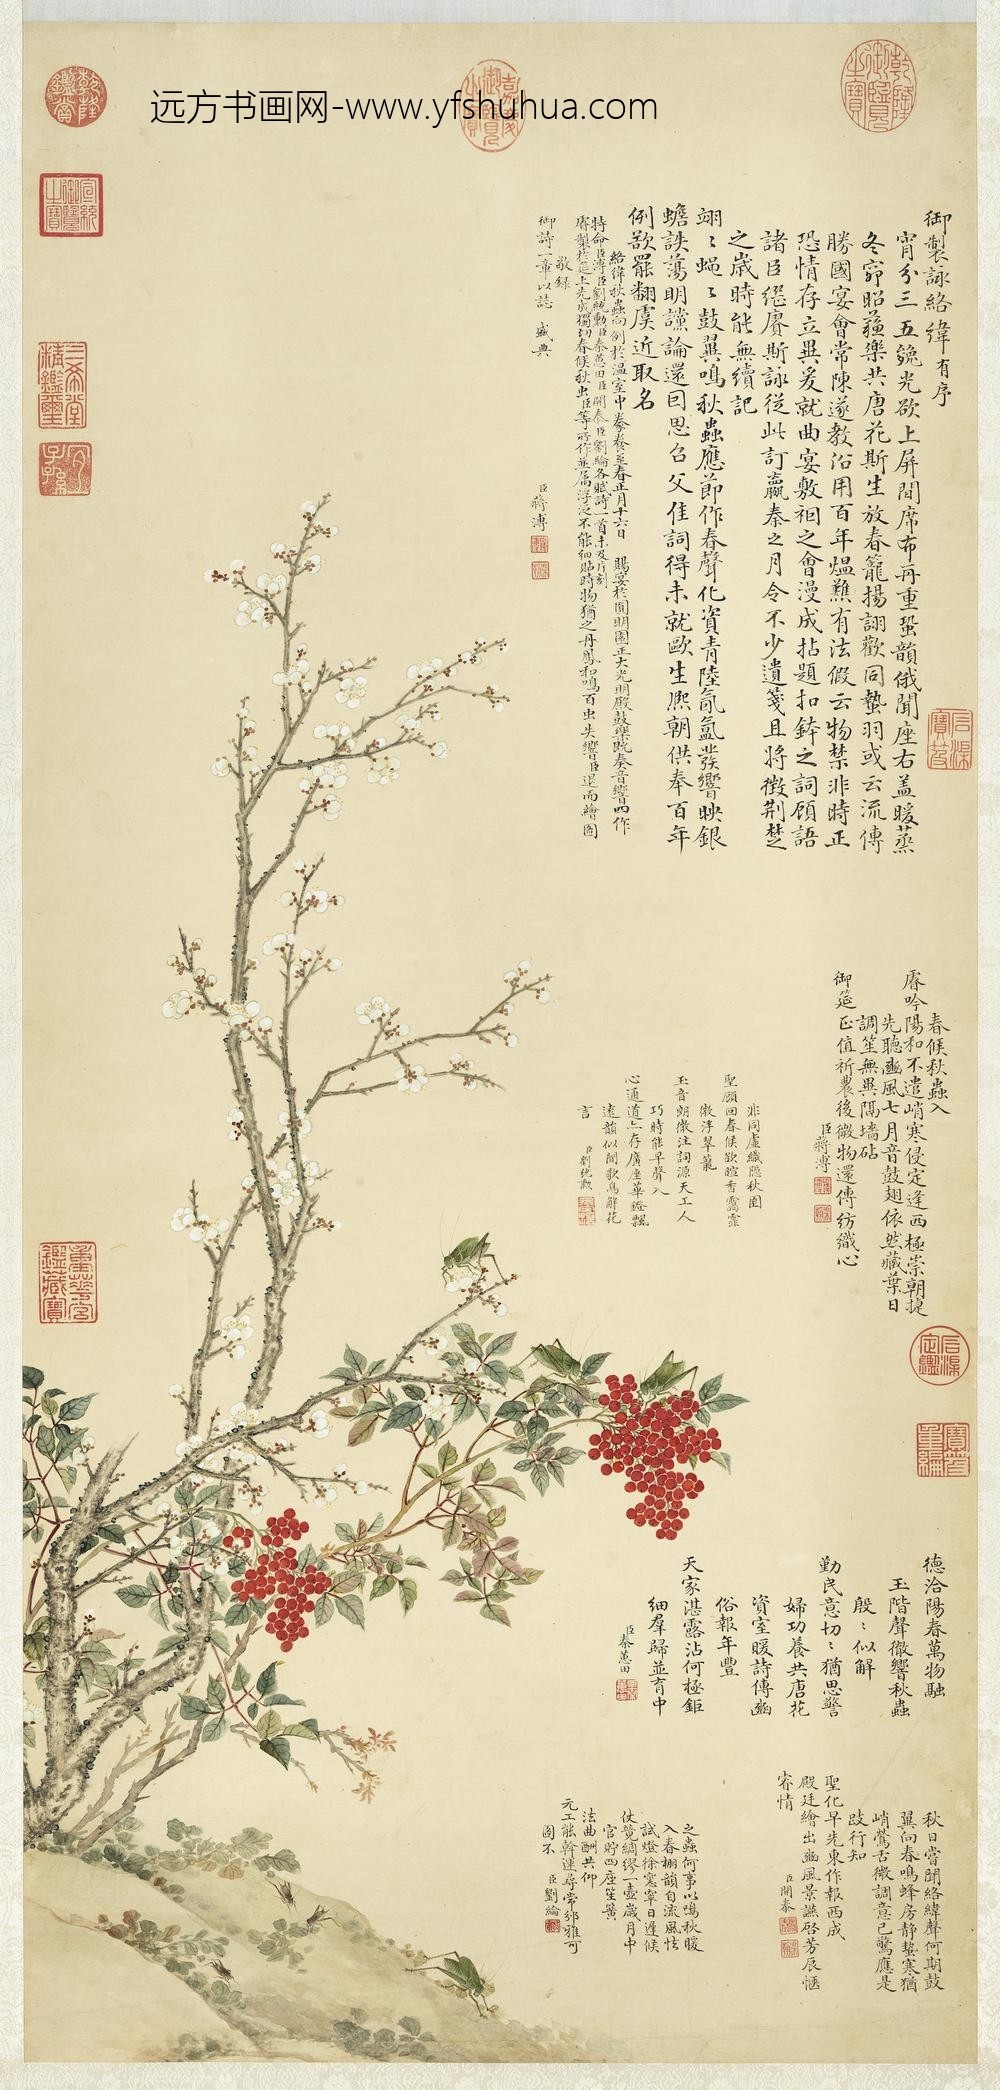 远方书画网-www.yfshuhua.com
乾隆鑑賞
嘉慶御覽之寶
乾隆御覽之寶
宣統御覽之寶
三希堂精鑑璽
宜子孫
御製詠絡緯有序
宵分三五巍光欲上屏間席布再重蛩韻俄聞座右盖暖蒸
冬窌昭蘓樂共唐花斯生放春籠揚詡歡同蟄羽或云流傳
勝國宴會常陳遂教俗用百年熅爇有法假云物禁非時正
恐情存立異爰就曲宴敷裀之會漫成拈題扣鉢之詞顧語
諸臣繼賡斯詠從此訂嬴秦之月令不少遺箋且將徵荆楚
之歲時能無續記
翊翊蝇蝇鼓翼鳴秋蟲應節作春聲化資青陸氤氲發響映銀
蟾詄蕩明讜論還囙思召父佳詞得未就歐生熈朝供奉百年
例歘罷翻虞近取名
絡緯秋蟲向例於温室中豢養至春正月十六日賜宴於圓明園正大光明殿鼓樂旣奏音響四作
特命臣溥臣劉統勳臣秦蕙田臣開泰臣劉綸各賦詩一首未及片刻
睿製於筵上先成獨切春候秋虫臣等所作並属浮泛不能細貼時物猶之丹鳳和鳴百虫失響臣退而繪圖
敬録
御詩一章以誌盛典
臣蔣溥
石渠寶笈
春候秋蟲入
睿吟陽和不遣峭寒侵定逢西極崇朝㨗
先聽豳風七月音鼓翅依然藏葉日
調笙無異隔墻砧
御筵正值祈農後微物還傳紡織心
臣蔣溥
非同虛織隱秋園
聖顧回春候欲暄香靄霏
微浮翠蓖
玉音朗徹注詞源天工人
巧時能早聲入
心通道六存廣座華鐙飄
逺韻似聞歌鳥解花
言
臣劉統勳
重華宮鑑藏寶
石渠定鑑
寶笈重編
德洽陽春萬物融
玉階聲徹響秋蟲
殷殷似解
勤民意切切猶思警
婦功養共唐花
資室暖詩傳豳
俗報年豐
天家湛露沾何極鉅
細羣歸並育中
臣秦蕙田
秋日嘗聞絡緯聲何期鼓
翼向春鳴蜂房静蟄寒猶
峭鶯舌微調意已驚應是
跂行知
聖化早先東作報西成
殿廷繪出豳風景讌啓芳辰愜
睿情
臣開泰
之蟲何事以鳴秋暖
入春棚韻自流風怯
試燈徐憲寧日遲候
仗競綢繆一壺歲月中
官貯四座笙簧
法曲酬共仰
元工能斡運尋常邠雅可
圖不
臣劉綸